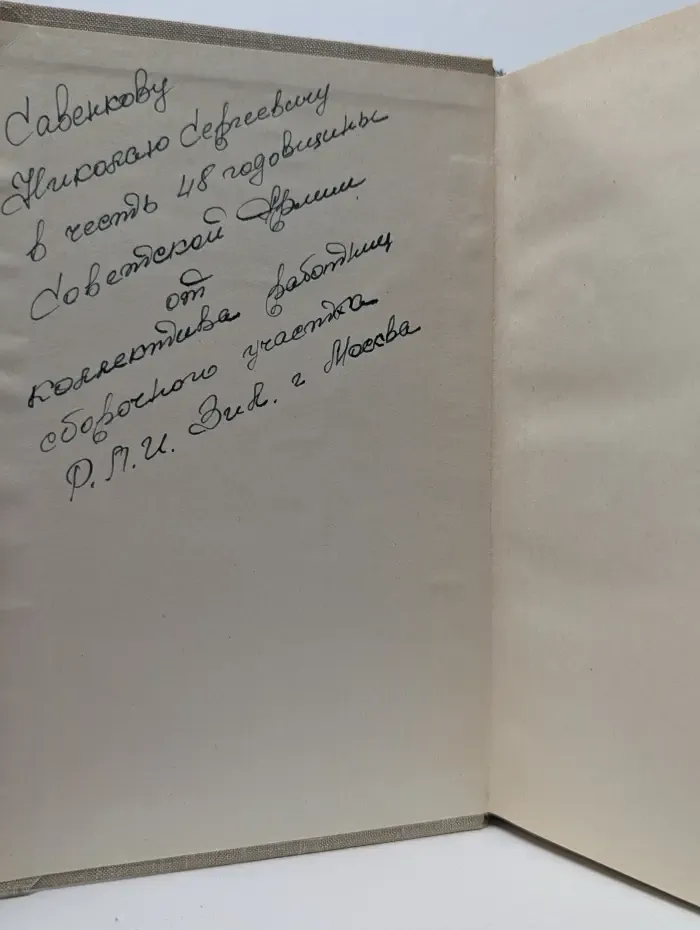 Савенкову
Николаю Сергеевичу
в честь 48 годовщины
Советской Армии
от
коллектива работниц
сборочного участка
Р.Л.И. Зил. г Москва